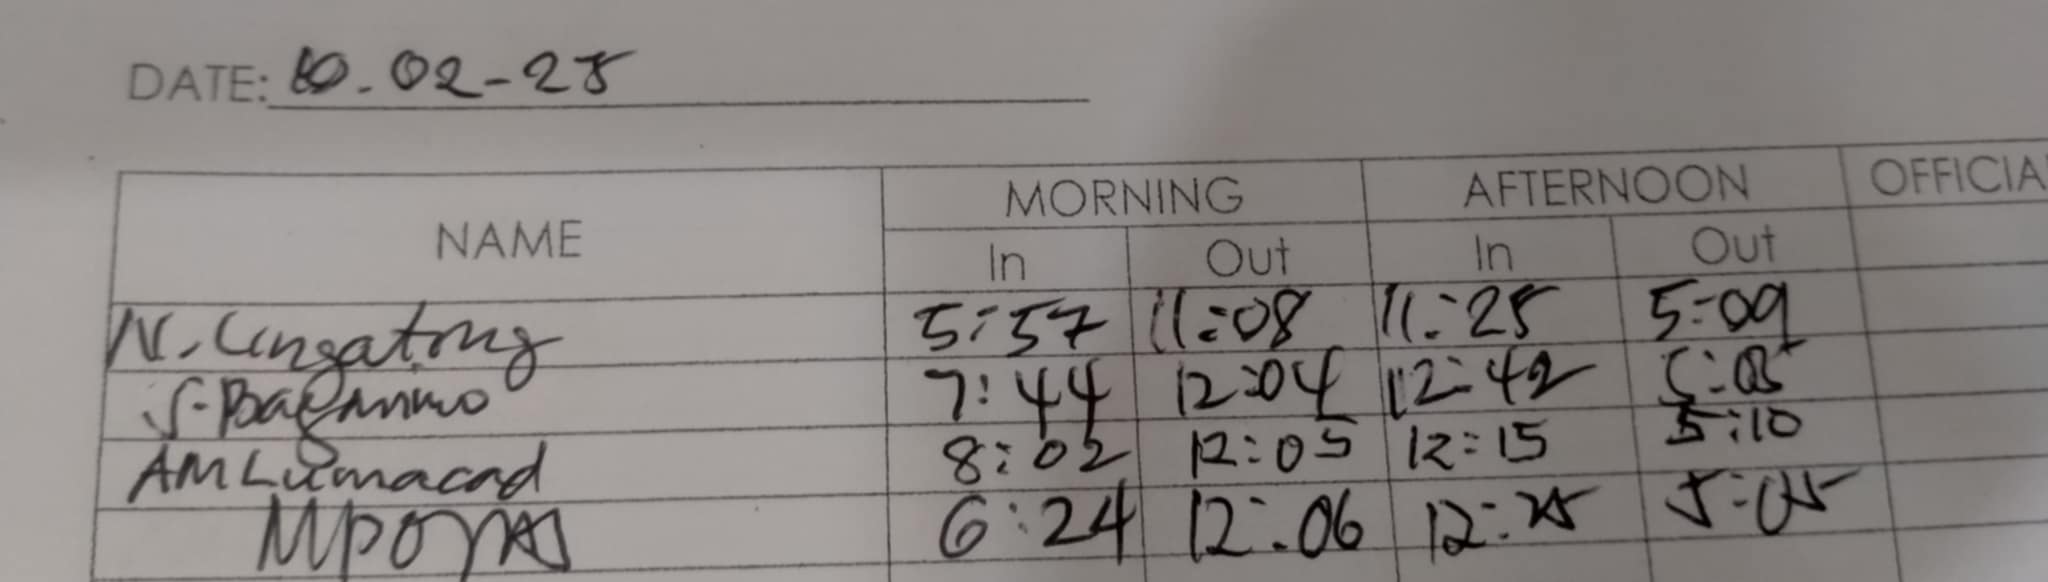 DATE: 10-02-25
NAME MORNING AFTERNOON OFFICIA
In Out In Out
N. Lingatong 5:57 11:08 11:25 5:09
S. 7:44 12:04 12:42 5:05
AM Lumacad 8:02 12:05 12:15 5:10
6:24 12:06 12:25 5:05